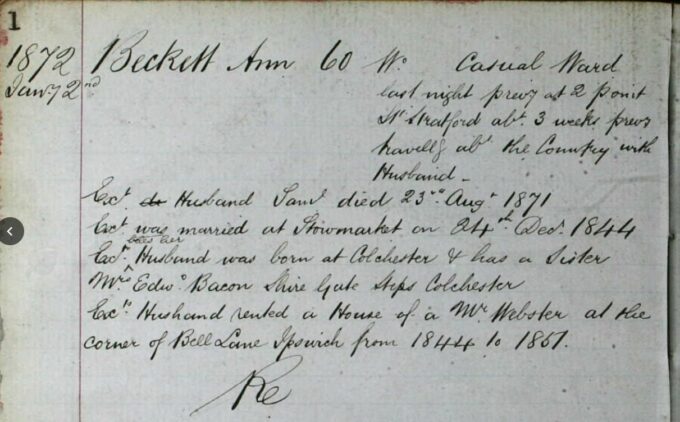 1
1872 Beckett Ann 60 Wo Casual Ward
Jany 2nd last night prevy at 2 Point
St Stratford abt 3 weeks prevy
travellg abt the Country with
Husband _
Ext Husband Saml died 23rd Augt 1871
Ext was married at Stowmarket on 24th Decr 1844
Exts Husband was born at Colchester & has a Sister
Mrs Edwd Bacon Shire Gate Steps Colchester
Exts Husband rented a House of a Mr Webster at the
corner of Bell Lane Ipswich from 1844 to 1851.
Re